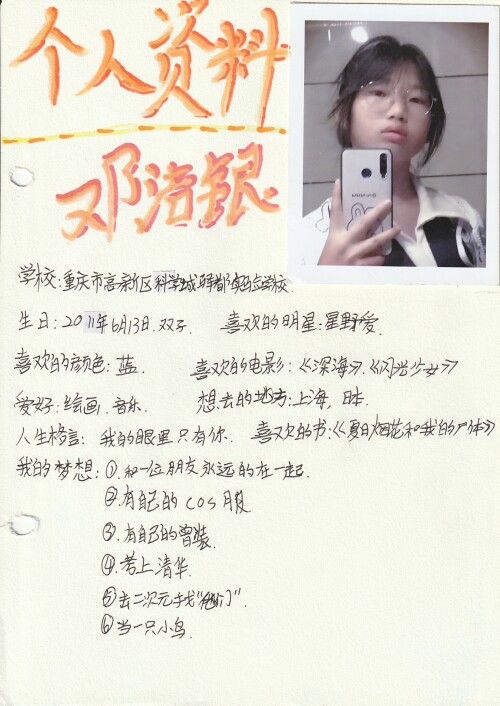 个人资料
邓洁银
学校:重庆市高新区科学城驿都实验学校.
生日:2011年6月13日.双子 喜欢的明星:星野爱.
喜欢的颜色:蓝. 喜欢的电影:《深海》.《闪光少女》
爱好:绘画.音乐. 想去的地方:上海,日本.
人生格言:我的眼里只有你. 喜欢的书:《夏日烟花和我的尸体》
我的梦想:①.和一位朋友永远的在一起.
②.有自己的cos服.
③.有自己的曾装.
④.考上清华.
⑤去二次元找“他们”.
⑥当一只小鸟.